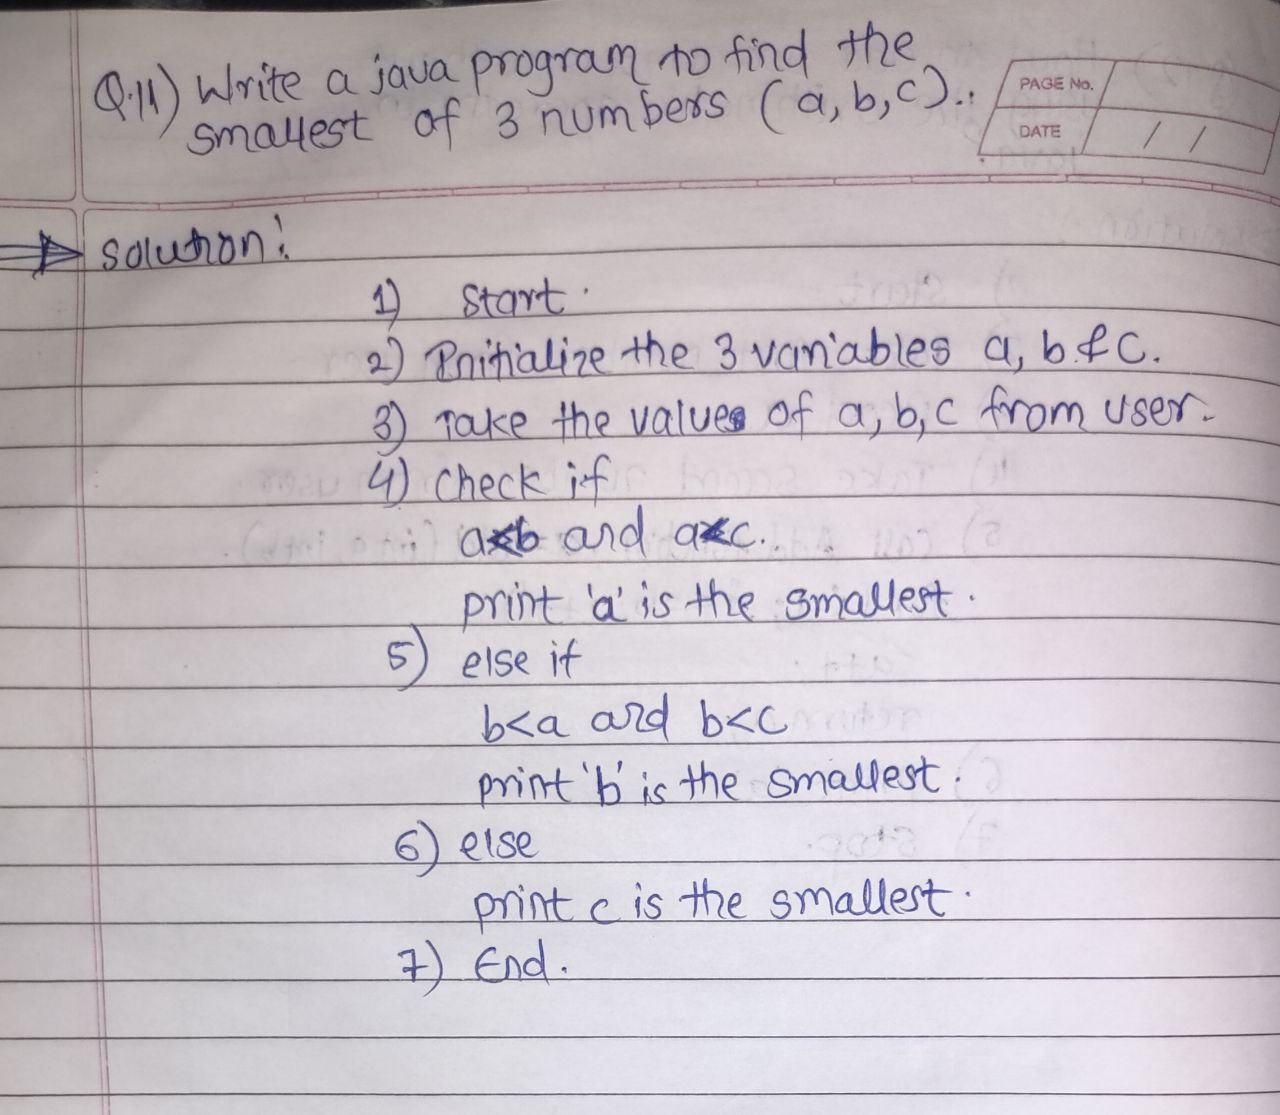 Q.11) Write a java program to find the
smallest of 3 numbers (a, b, c).
PAGE No.
DATE / /
Solution:
1) Start.
2) Initialize the 3 variables a, b & c.
3) Take the values of a, b, c from user.
4) check if
a<b and a<c.
print 'a' is the smallest.
5) else if
b<a and b<c
print 'b' is the smallest.
6) else
print c is the smallest.
7) End.